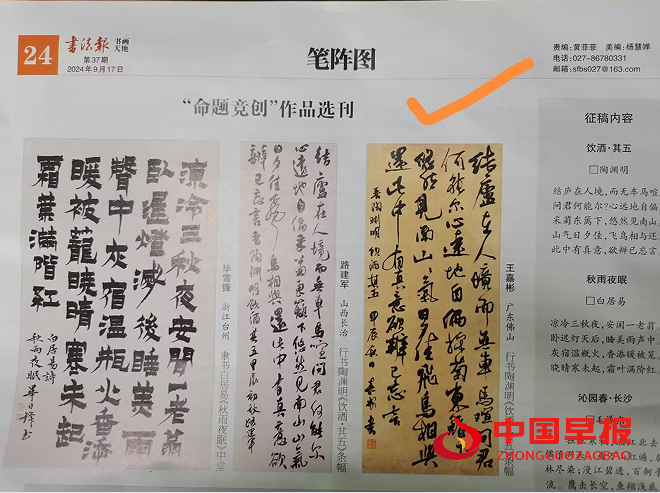 24
书法报 书画天地
第37期
2024年9月17日
笔阵图
责编:黄菲菲 美编:杨慧婵
电话:027-86780331
邮箱:sfbs027@163.com
“命题竞创”作品选刊
凉冷三秋夜安閒一老翁
卧遲燈滅後睡美雨
聲中灰宿温瓶火香添
暖被籠曉晴寒未起
霜葉滿階紅
白居易詩
秋雨夜眠
毕雪锋 浙江台州 隶书白居易《秋雨夜眠》中堂
结廬在人境而無車馬喧问君何能尔
心遠地自偏采菊東籬下悠然見南山山氣
日夕佳飛鳥相與還此中有真意欲
辨已忘言 書陶淵明飲酒其五甲辰初秋路建軍
路建军 山西长治 行书陶渊明《饮酒·其五》条幅
结廬在人境而無車馬喧问君
何能尔心遠地自偏採菊東籬下
悠然見南山山氣日夕佳飛鳥相與
還此中有真意欲辨已忘言
王嘉彬 广东佛山 行书陶渊明《饮酒·其五》条幅
征稿内容
饮酒·其五
□陶渊明
结庐在人境,而无车马喧
问君何能尔?心远地自偏
采菊东篱下,悠然见南山
山气日夕佳,飞鸟相与还
此中有真意,欲辨已忘言
秋雨夜眠
□白居易
凉冷三秋夜,安闲一老翁
卧迟灯灭后,睡美雨声中
灰宿温瓶火,香添暖被笼
晓晴寒未起,霜叶满阶红
沁园春·长沙
林尽染;漫江碧透,百舸争
流。鹰击长空,鱼翔浅底
中国早报
ZHONGGUOZAOBAO